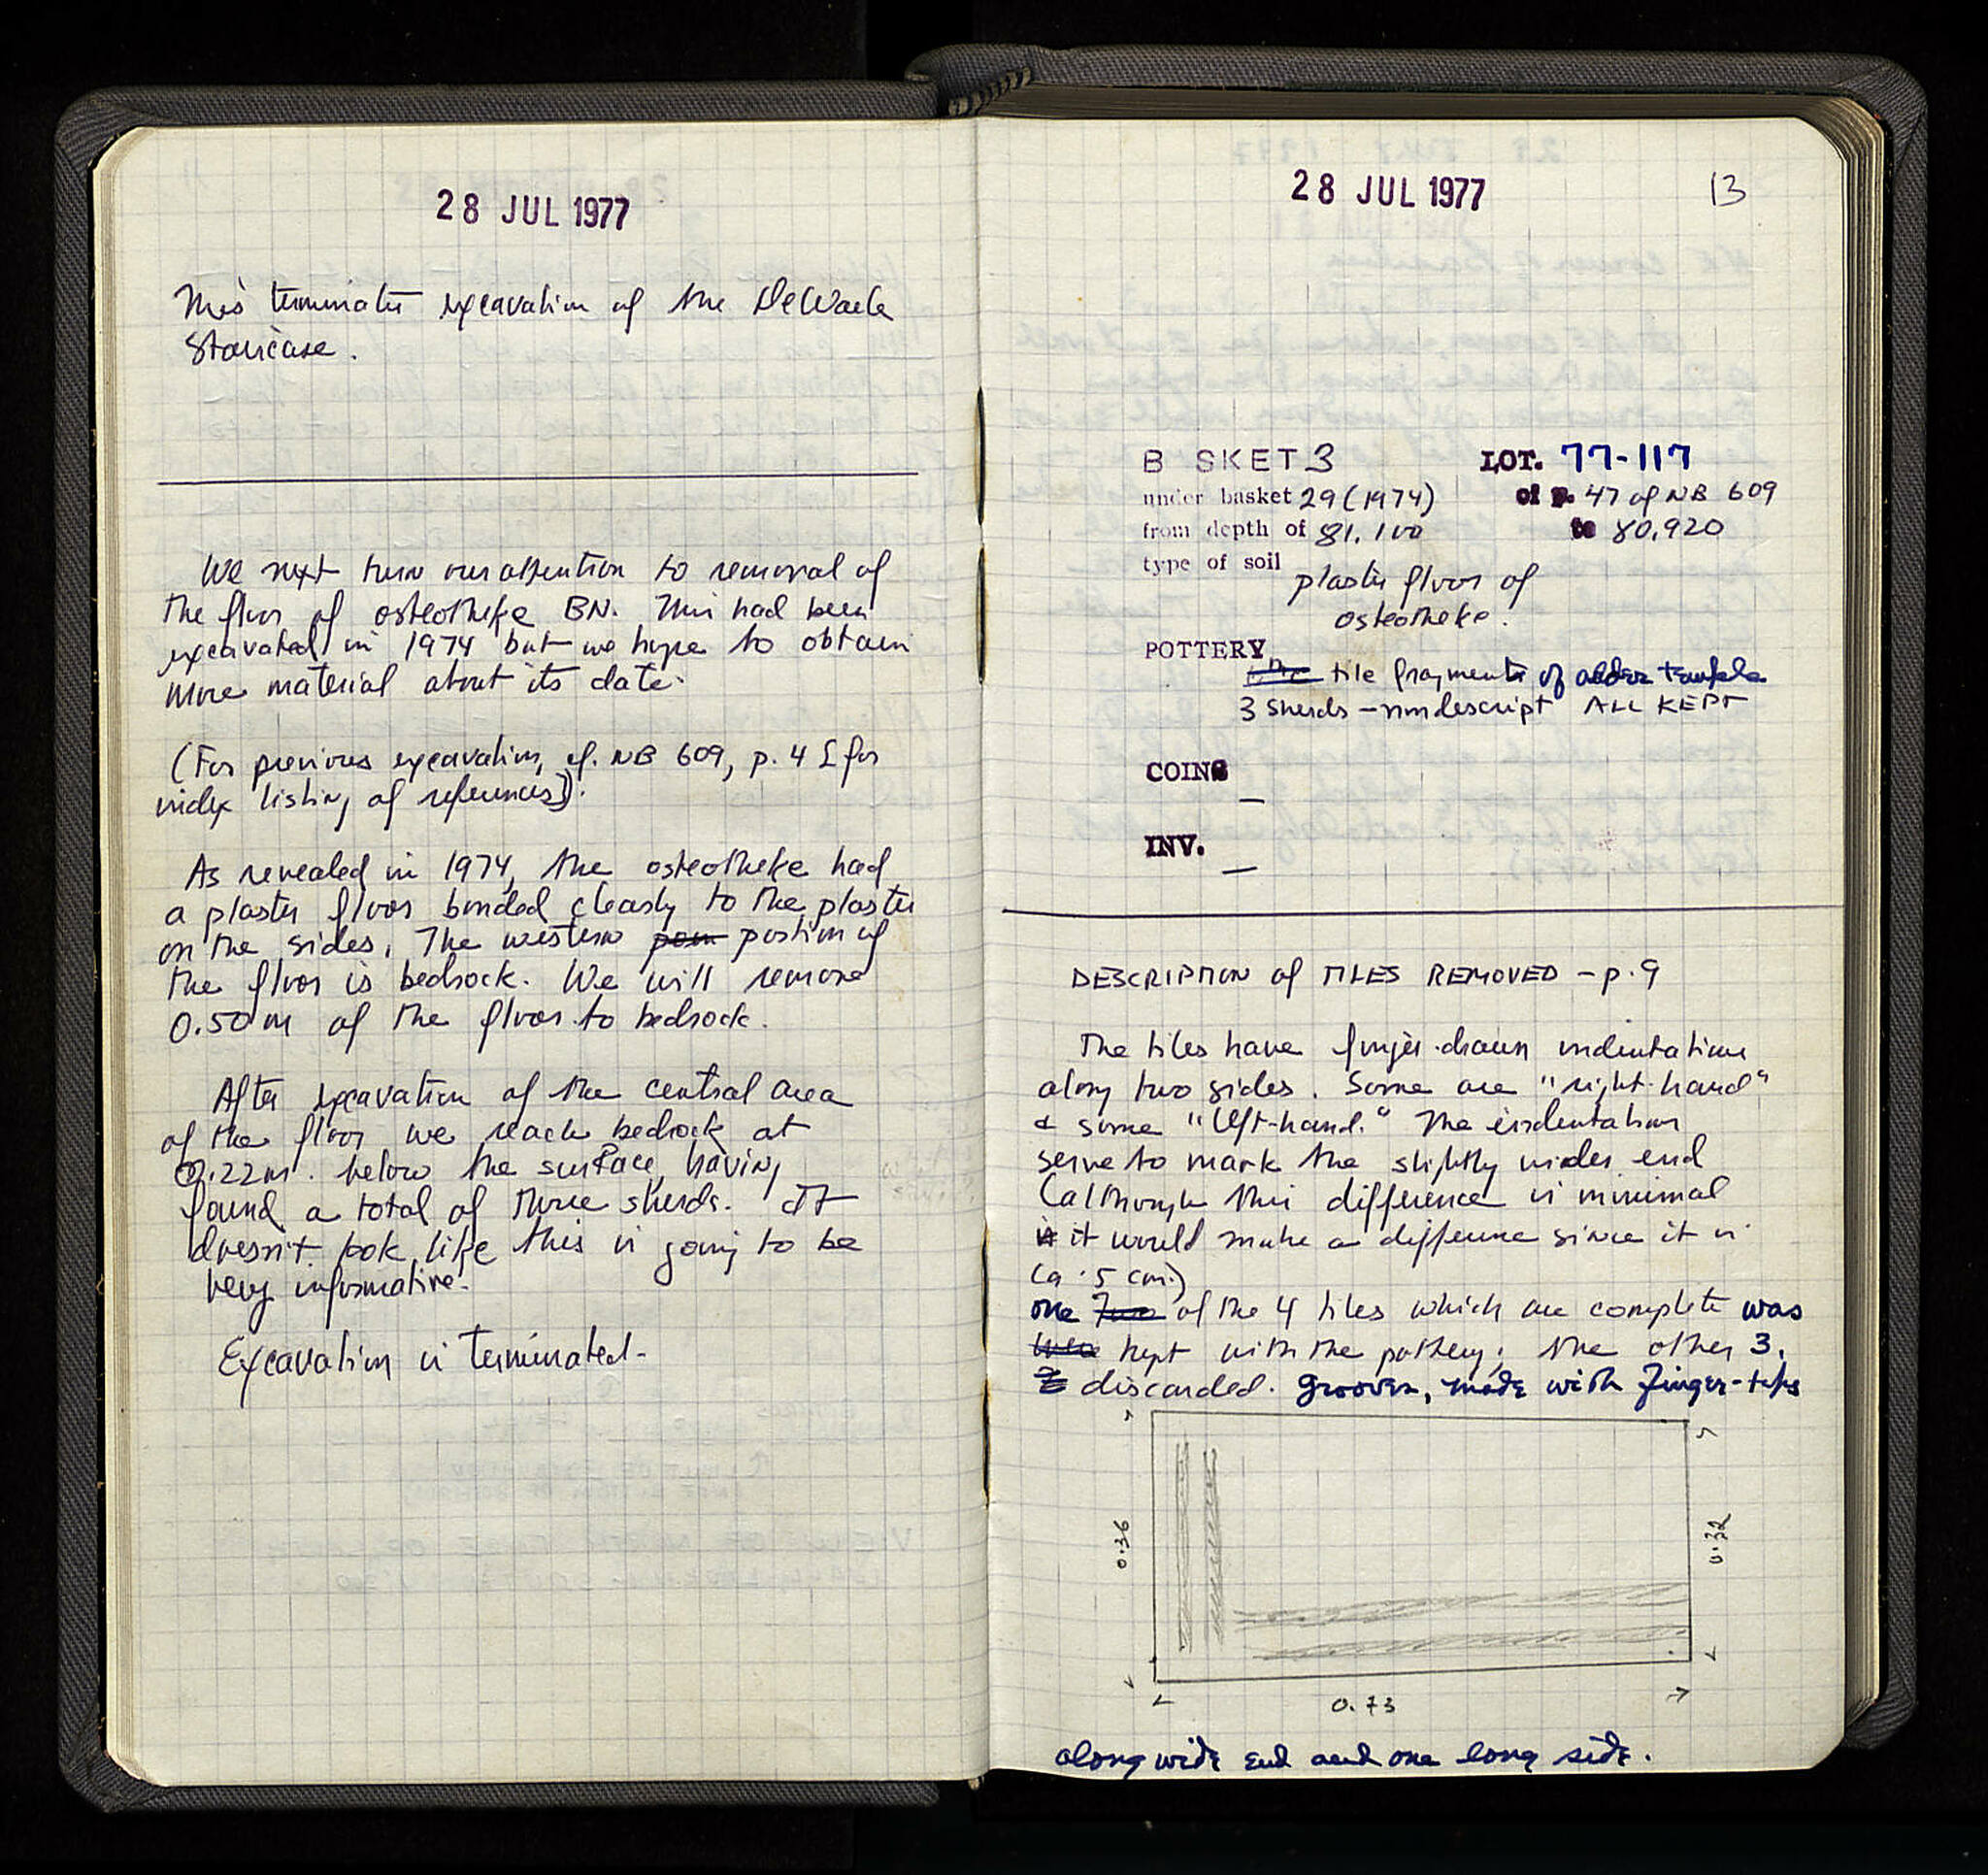 28 JUL 1977
This terminates excavation of the DeWaele
Staircase.
We next turn our attention to removal of
the floor of osteotheke BN. This had been
excavated in 1974 but we hope to obtain
more material about its date.
(For previous excavation, cf. NB 609, p. 4 [for
index listing of references]).
As revealed in 1974, the osteotheke had
a plaster floor bonded clearly to the plaster
on the sides. The western portion of
the floor is bedrock. We will remove
0.50 m of the floor to bedrock.
After excavation of the central area
of the floor we reach bedrock at
0.22m. below the surface, having
found a total of three sherds. It
doesn't look like this is going to be
very informative.
Excavation is terminated.
28 JUL 1977
13
B SKET 3 LOT. 77-117
under basket 29 (1974) of p. 47 of NB 609
from depth of 81.100 to 80.920
type of soil plaster floor of
osteotheke.
POTTERY
tile fragments of older temple
3 sherds – nondescript ALL KEPT
COINS
—
INV.
—
DESCRIPTION of TILES REMOVED – p. 9
The tiles have finger-drawn indentations
along two sides. Some are "right-hand"
& some "left-hand." The indentations
serve to mark the slightly wider end
(although this difference is minimal
it would make a difference since it is
ca. 5 cm.)
one of the 4 tiles which are complete was
kept with the pottery; the other 3,
discarded. grooves, made with finger-tips
0.36
0.32
0.73
along wide end and one long side.